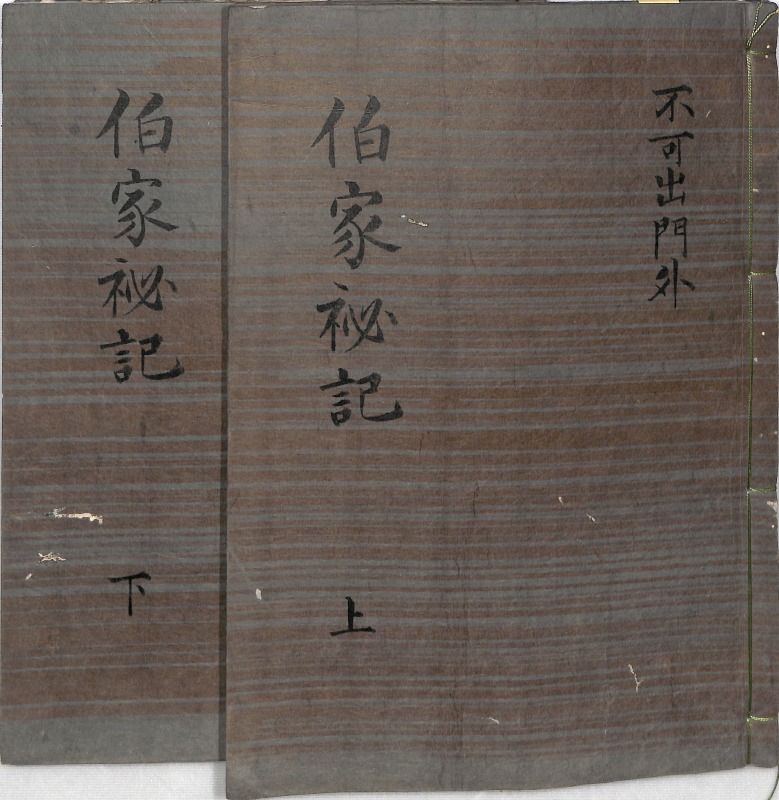 不可出門外
伯家祕記
上
伯家祕記
下